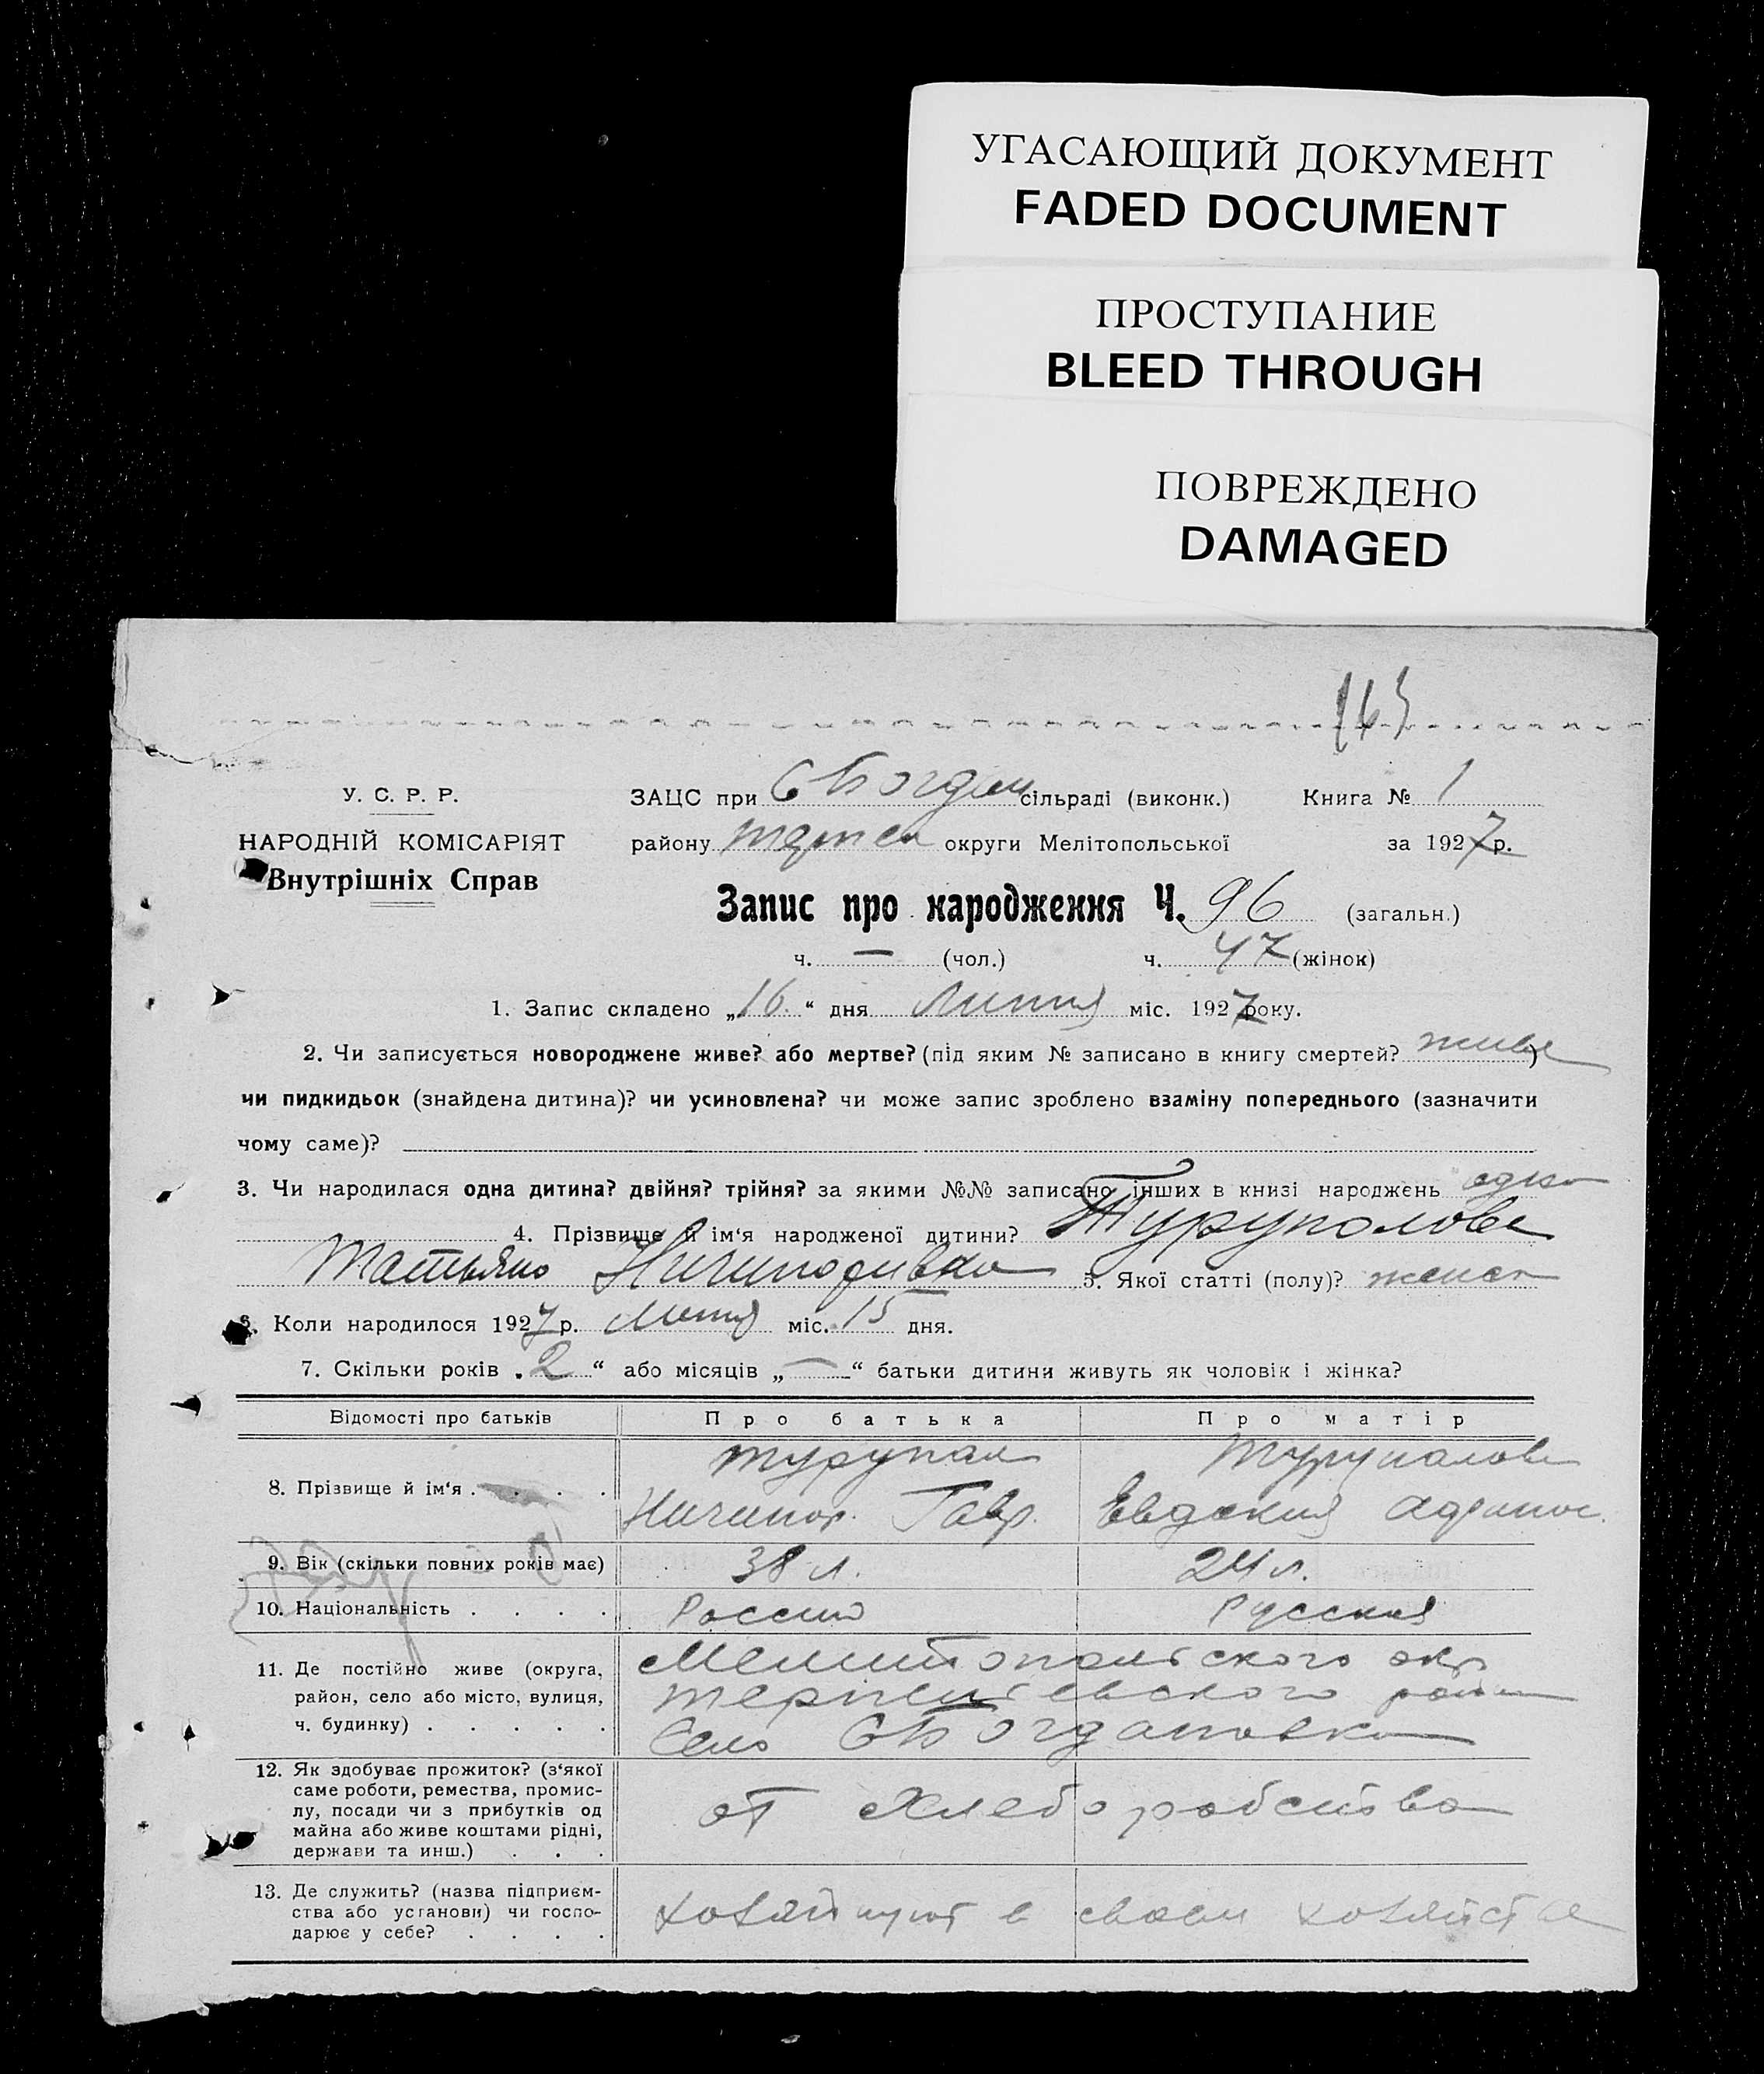 УГАСАЮЩИЙ ДОКУМЕНТ
FADED DOCUMENT
ПРОСТУПАНИЕ
BLEED THROUGH
ПОВРЕЖДЕНО
DAMAGED
У. С. Р. Р.
НАРОДНІЙ КОМІСАРІЯТ
Внутрішніх Справ
ЗАЦС при С Богдан сільраді (виконк.) Книга № 1
району округи Мелітопольської за 1927 р.
Запис про народження Ч. 96 (загальн.)
ч. — (чол.) ч. 47 (жінок)
1. Запис складено „16.“ дня міс. 1927 року.
2. Чи записується новороджене живе? або мертве? (під яким № записано в книгу смертей? живе)
чи пидкидьок (знайдена дитина)? чи усиновлена? чи може запис зроблено взаміну попереднього (зазначити
чому саме)?
3. Чи народилася одна дитина? двійня? трійня? за якими №№ записано інших в книзі народжень одна
4. Прізвище й ім‘я народженої дитини? Туруполова
Татьяна 5. Якої статті (полу)? женск
6. Коли народилося 1927 р. міс. 15 дня.
7. Скільки років „2“ або місяців „—“ батьки дитини живуть як чоловік і жінка?
Відомості про батьків Про батька Про матір
8. Прізвище й ім‘я . . . . Турупал Турупалова
Ничипор. Гавр. Евдокия
9. Вік (скільки повних років має) 38 л. 24 л.
10. Національність . . . . Русская
11. Де постійно живе (округа,
район, село або місто, вулиця,
ч. будинку) . . . . .
Мелитопольского окр
район
Село С Богдановка
12. Як здобуває прожиток? (з‘якої
саме роботи, ремества, промис-
лу, посади чи з прибутків од
майна або живе коштами рідні,
держави та инш.) . . .
от Хлеборобства
13. Де служить? (назва підприєм-
ства або установи) чи госпо-
дарює у себе? . . . .
хозяйнуют в своем хозяйстве